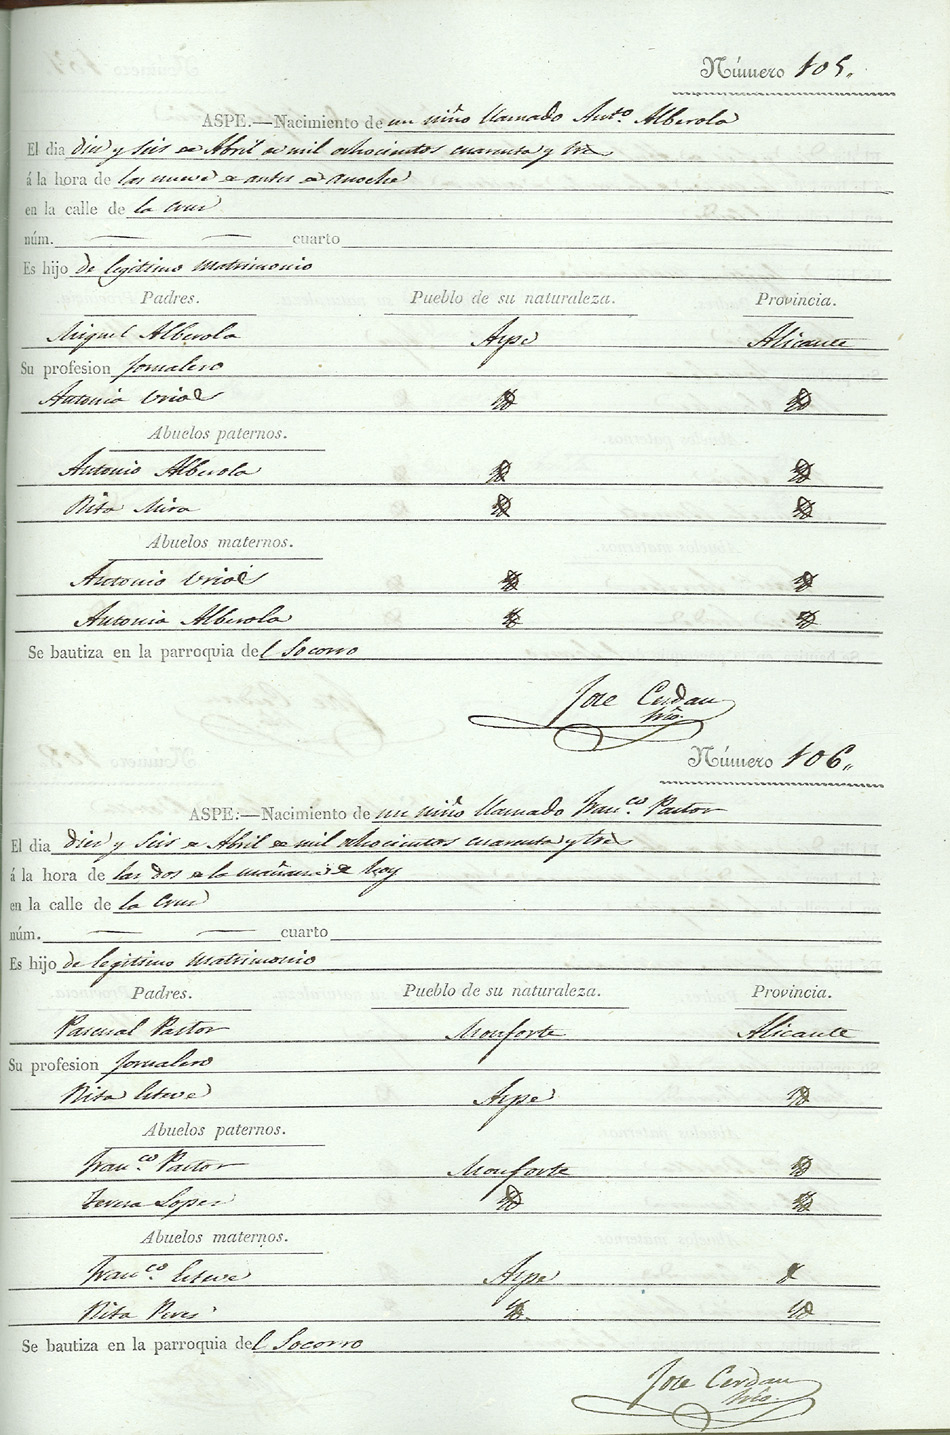 Número 105.
ASPE.—Nacimiento de un niño llamado Ant.º Alberola
El dia diez y seis de Abril de mil ochocientos cuarenta y tres
á la hora de las nueve de antes de anoche
en la calle de la Cruz
núm. cuarto
Es hijo de legitimo matrimonio
Padres. Pueblo de su naturaleza. Provincia.
Miguel Alberola Aspe Alicante
Su profesion Jornalero
Antonia
Abuelos paternos.
Antonio Alberola
Rita Mira
Abuelos maternos.
Antonio
Antonia Alberola
Se bautiza en la parroquia del Socorro
Jose Cerdan
Número 106.
ASPE.—Nacimiento de un niño llamado Fran.co Pastor
El dia diez y seis de Abril de mil ochocientos cuarenta y tres
á la hora de las dos de la mañana de hoy
en la calle de la Cruz
núm. cuarto
Es hijo de legitimo matrimonio
Padres. Pueblo de su naturaleza. Provincia.
Pascual Pastor Monforte Alicante
Su profesion Jornalero
Rita Esteve Aspe
Abuelos paternos.
Fran.co Pastor Monforte
Teresa Lopez
Abuelos maternos.
Fran.co Esteve Aspe
Rita Peres
Se bautiza en la parroquia del Socorro
Jose Cerdan